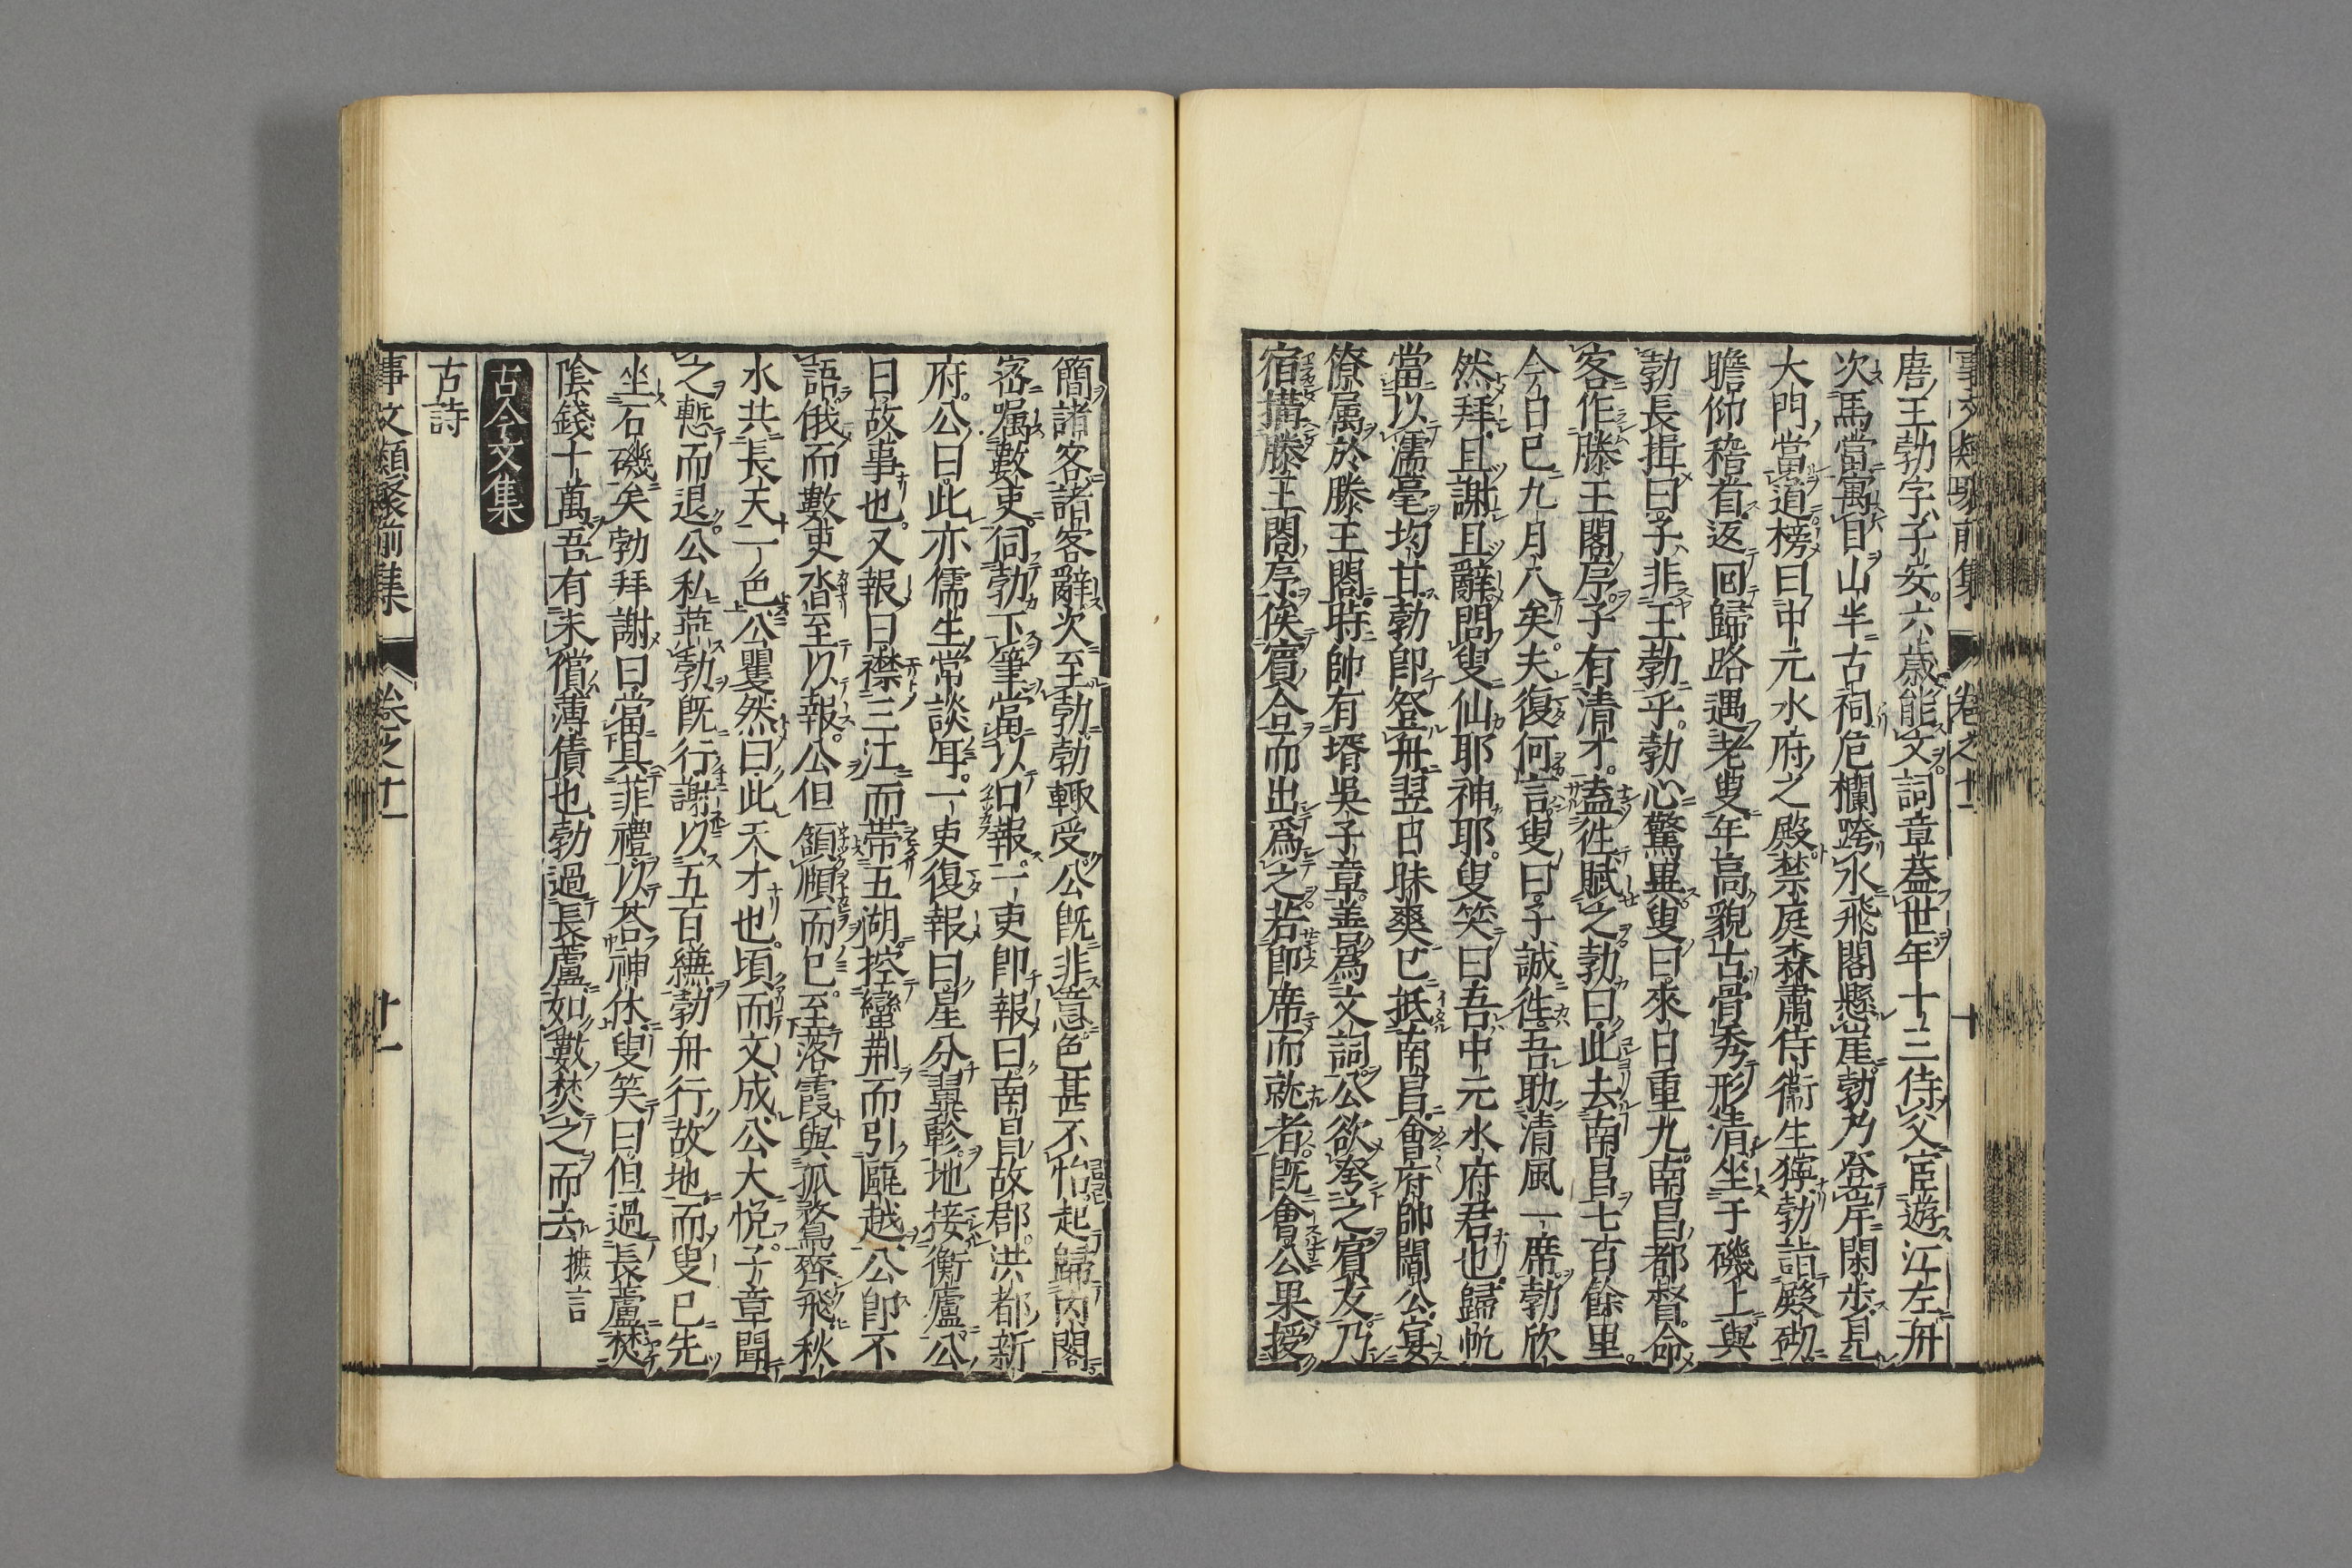 事文類聚前集　卷之十一　十
唐王勃字子安六歲能文詞章蓋世年十三侍父宦遊江左舟
次馬當寓目山半古祠危欄跨水飛閣懸崖勃乃登岸閑步見
大門當道榜曰中元水府之殿禁庭森肅侍衞生獰勃詣殿砌
瞻仰稽首返回歸路遇老叟年高貌古骨秀形清坐于磯上與
勃長揖曰子非王勃乎勃心驚異叟曰來日重九南昌都督命
客作滕王閣序子有清才盍徃賦之勃曰此去南昌七百餘里
今日已九月八矣夫復何言叟曰子誠徃吾助清風一席勃欣
然拜且謝且辭問叟仙耶神耶叟笑曰吾中元水府君也歸帆
當以濡毫均甘勃即登舟翌日昧爽已抵南昌會府帥閻公宴
僚属於滕王閣時帥有壻吳子章善爲文詞公欲夸之賓友乃
宿搆滕王閣序俟賓合而出爲之若即席而就者既會公果授
簡諸客諸客辭次至勃勃輒受公既非意色甚不怡起歸内閣
密嘱數吏伺勃下筆當以口報一吏即報曰南昌故郡洪都新
府公曰此亦儒生常談耳一吏復報曰星分翼軫地接衡廬公
曰故事也又報曰襟三江而帶五湖控蠻荆而引甌越公即不
語俄而數吏沓至以報公但頷頤而已至落霞與孤鶩齊飛秋
水共長天一色公矍然曰此天才也頃而文成公大悅子章聞
之慙而退公私燕勃既行謝以五百縑勃舟行故地而叟已先
坐石磯矣勃拜謝曰當具菲禮以荅神休叟笑曰但過長蘆焚
陰錢十萬吾有未償薄債也勃過長蘆如數焚之而去 摭言
古今文集
古詩
事文類聚前集　卷之十一　十一